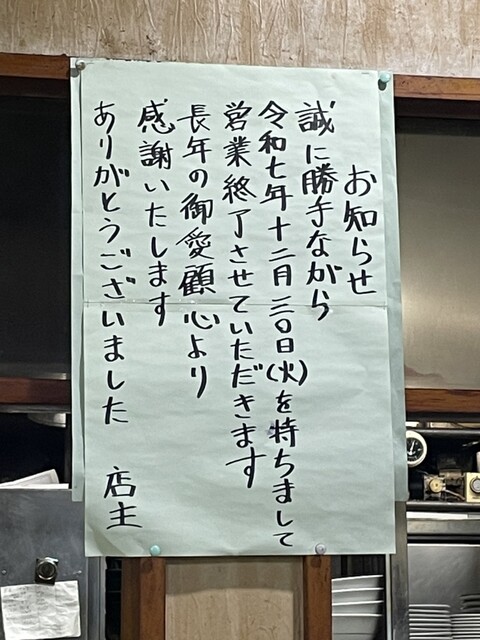 お知らせ
誠に勝手ながら
令和七年十二月三〇日(火)を持ちまして
営業終了させていただきます
長年の御愛顧心より
感謝いたします
ありがとうございました 店主